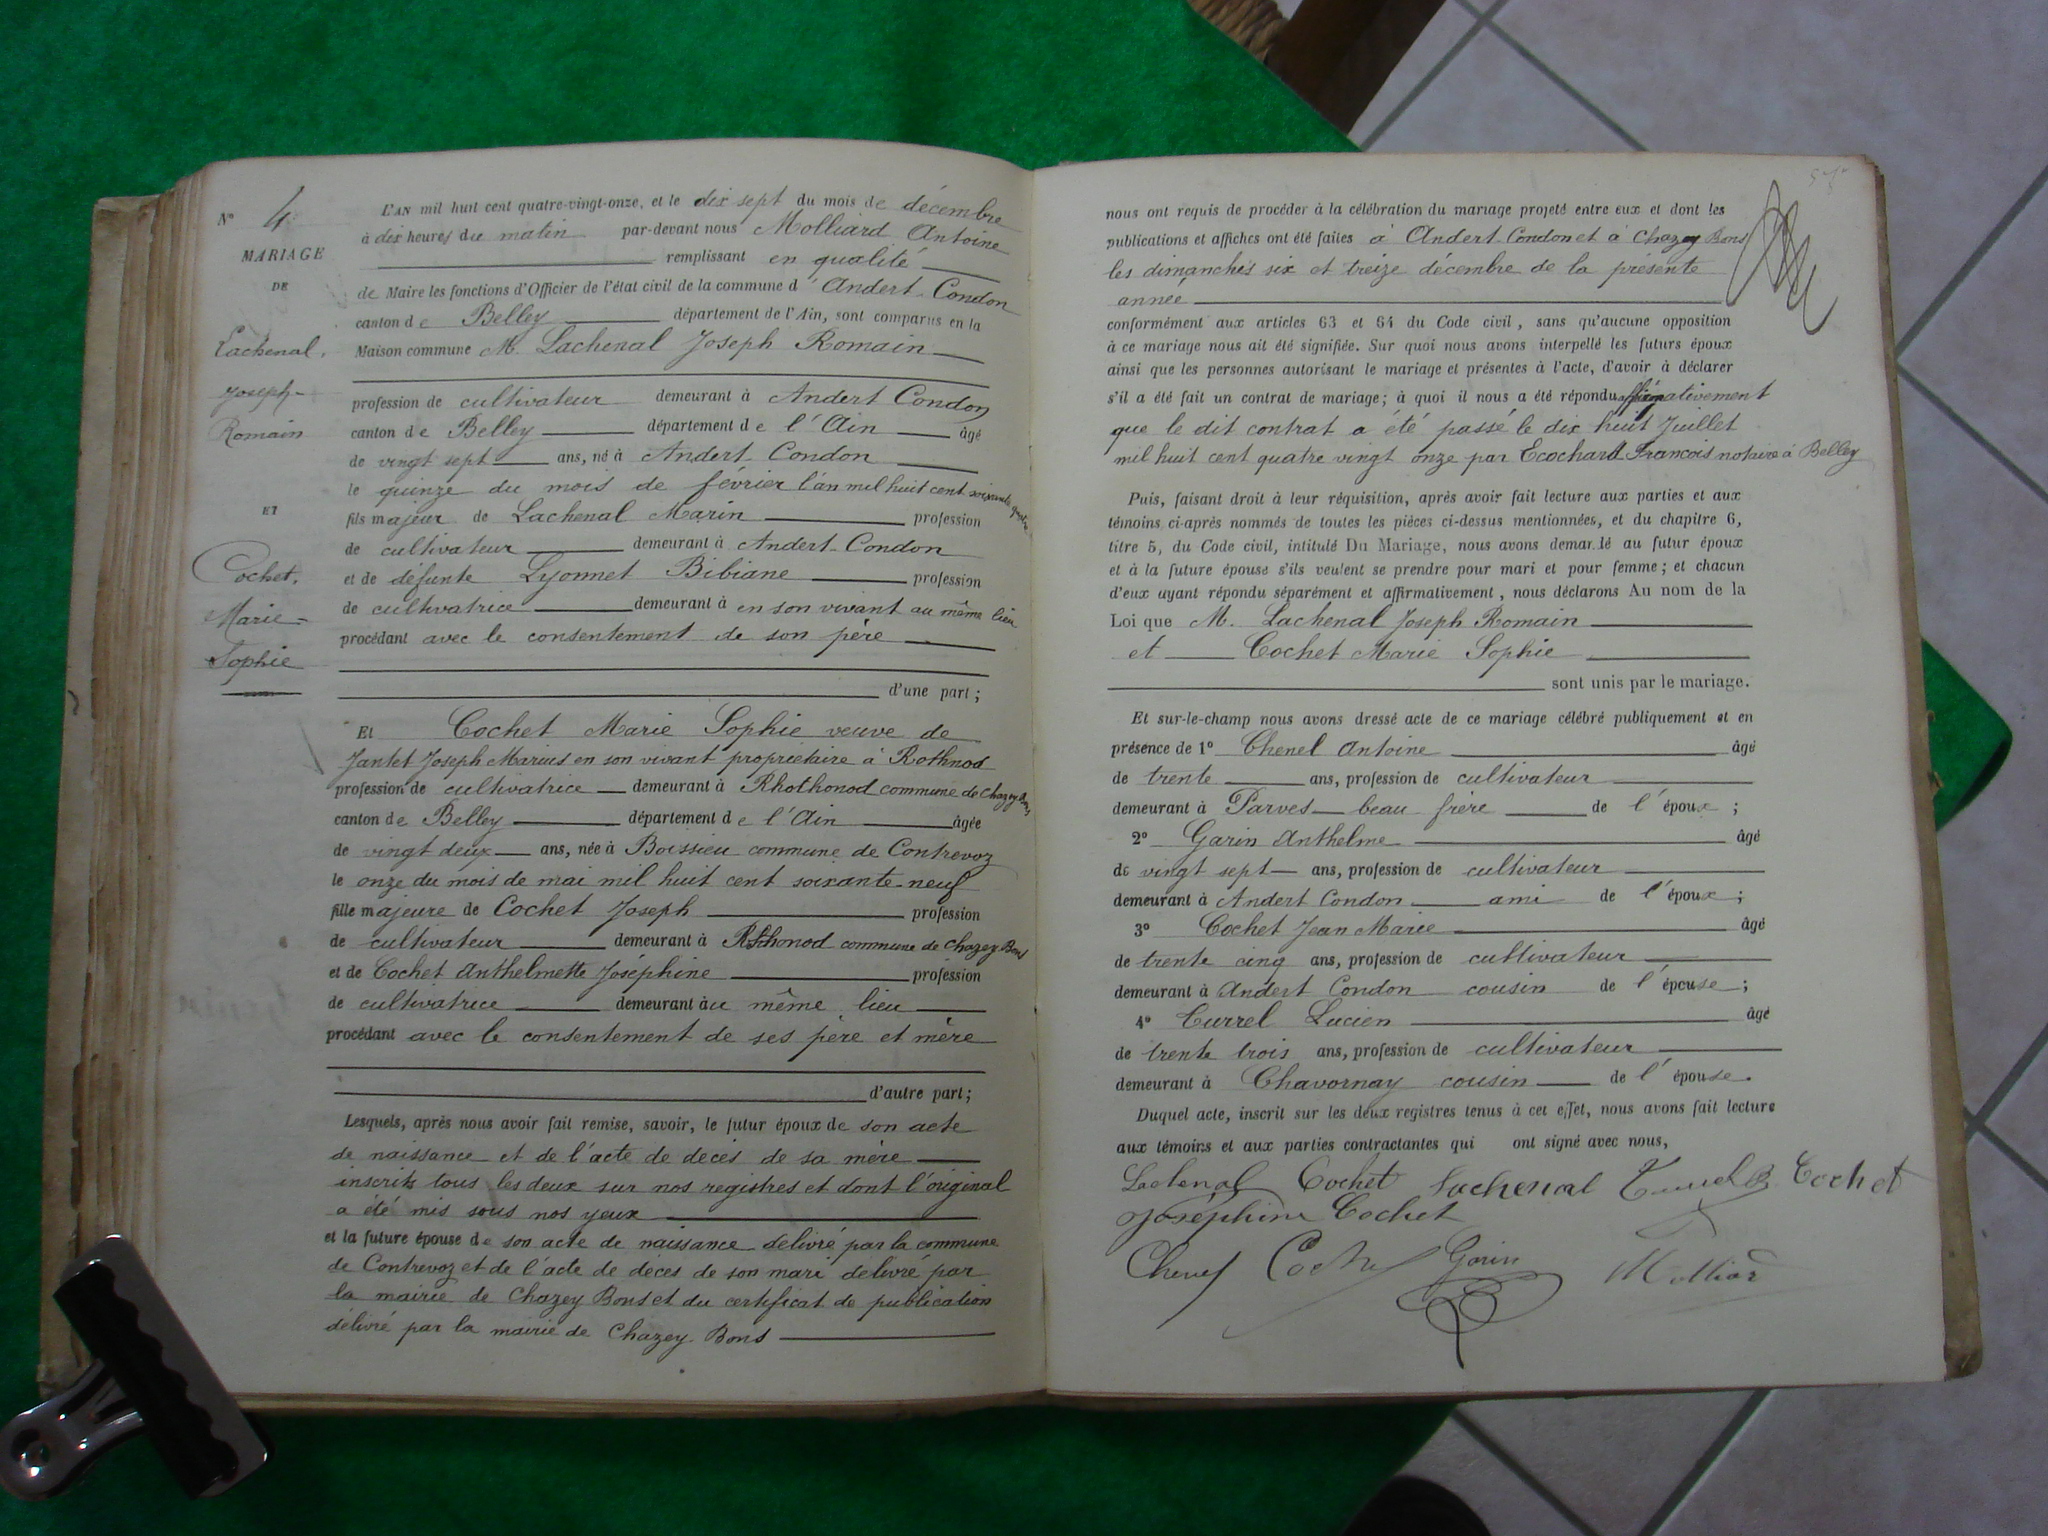 N° 4
MARIAGE
DE
Lachenal,
Joseph-
Romain
ET
Cochet,
Marie-
Sophie
L'AN mil huit cent quatre-vingt-onze, et le dix sept du mois de décembre
à dix heures du matin par-devant nous Molliard Antoine
remplissant en qualité
de Maire les fonctions d'Officier de l'état civil de la commune d'Andert-Condon
canton de Belley département de l'Ain, sont comparus en la
Maison commune M. Lachenal Joseph Romain
profession de cultivateur demeurant à Andert Condon
canton de Belley département de l'Ain âgé
de vingt sept ans, né à Andert Condon
le quinze du mois de février l'an mil huit cent soixante quatre
fils majeur de Lachenal Marin profession
de cultivateur demeurant à Andert-Condon
et de défunte Lyonnet Bibiane profession
de cultivatrice demeurant à en son vivant au même lieu
procédant avec le consentement de son père
d'une part;
Et Cochet Marie Sophie veuve de
Jantet Joseph Marius en son vivant propriétaire à Rothnod
profession de cultivatrice demeurant à Rhothonod commune de Chazey Bons
canton de Belley département de l'Ain âgée
de vingt deux ans, née à Boissieu commune de Contrevoz
le onze du mois de mai mil huit cent soixante-neuf
fille majeure de Cochet Joseph profession
de cultivateur demeurant à Rhonod commune de Chazey Bons
et de Cochet Anthelmette Joséphine profession
de cultivatrice demeurant àu même lieu
procédant avec le consentement de ses père et mère
d'autre part;
Lesquels, après nous avoir fait remise, savoir, le futur époux de son acte
de naissance et de l'acte de décès de sa mère
inscrits tous les deux sur nos registres et dont l'original
a été mis sous nos yeux
et la future épouse de son acte de naissance délivré par la commune
de Contrevoz et de l'acte de décès de son mari délivré par
la mairie de Chazey Bons et du certificat de publication
délivré par la mairie de Chazey-Bons
nous ont requis de procéder à la célébration du mariage projeté entre eux et dont les
publications et affiches ont été faites à Andert Condon et à Chazey Bons
les dimanches six et treize décembre de la présente
année
conformément aux articles 63 et 64 du Code civil, sans qu'aucune opposition
à ce mariage nous ait été signifiée. Sur quoi nous avons interpellé les futurs époux
ainsi que les personnes autorisant le mariage et présentes à l'acte, d'avoir à déclarer
s'il a été fait un contrat de mariage; à quoi il nous a été répondu affirmativement
que le dit contrat a été passé le dix huit Juillet
mil huit cent quatre vingt onze par Ecochard François notaire à Belley
Puis, faisant droit à leur réquisition, après avoir fait lecture aux parties et aux
témoins ci-après nommés de toutes les pièces ci-dessus mentionnées, et du chapitre 6,
titre 5, du Code civil, intitulé Du Mariage, nous avons demandé au futur époux
et à la future épouse s'ils veulent se prendre pour mari et pour femme; et chacun
d'eux ayant répondu séparément et affirmativement, nous déclarons Au nom de la
Loi que M. Lachenal Joseph Romain
et Cochet Marie Sophie
sont unis par le mariage.
Et sur-le-champ nous avons dressé acte de ce mariage célébré publiquement et en
présence de 1° Chenel Antoine âgé
de trente ans, profession de cultivateur
demeurant à Parves beau frère de l'époux;
2° Garin Anthelme âgé
de vingt sept ans, profession de cultivateur
demeurant à Andert Condon ami de l'époux;
3° Cochet Jean Marie âgé
de trente cinq ans, profession de cultivateur
demeurant à Andert Condon cousin de l'épouse;
4° Currel Lucien âgé
de trente trois ans, profession de cultivateur
demeurant à Chavornay cousin de l'épouse.
Duquel acte, inscrit sur les deux registres tenus à cet effet, nous avons fait lecture
aux témoins et aux parties contractantes qui ont signé avec nous,
Lachenal Cochet Lachenal Cochet
Joséphine Cochet
Chenel Cochet Garin Molliard